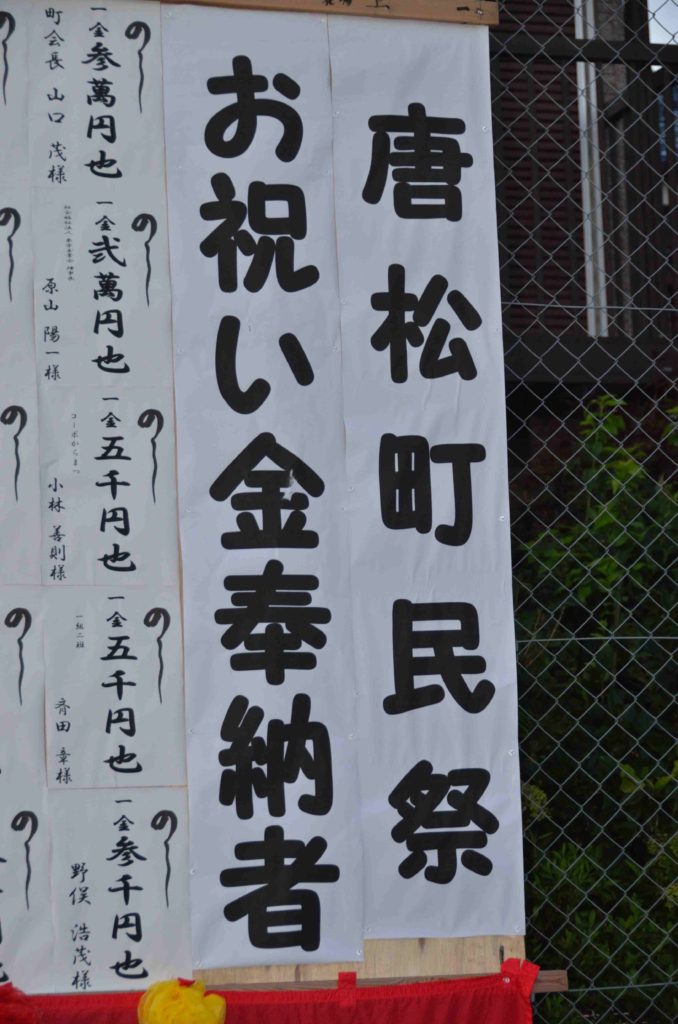 唐松町民祭
お祝い金奉納者
の
一金 参萬円也
町会長 山口 茂様
の
一金 弐萬円也
原山 陽一様
の
一金 五千円也
コーポからまつ
小林 善則様
の
一金 五千円也
一組二班
斉田 章様
の
一金 参千円也
野俣 浩茂様
の
の
の
の